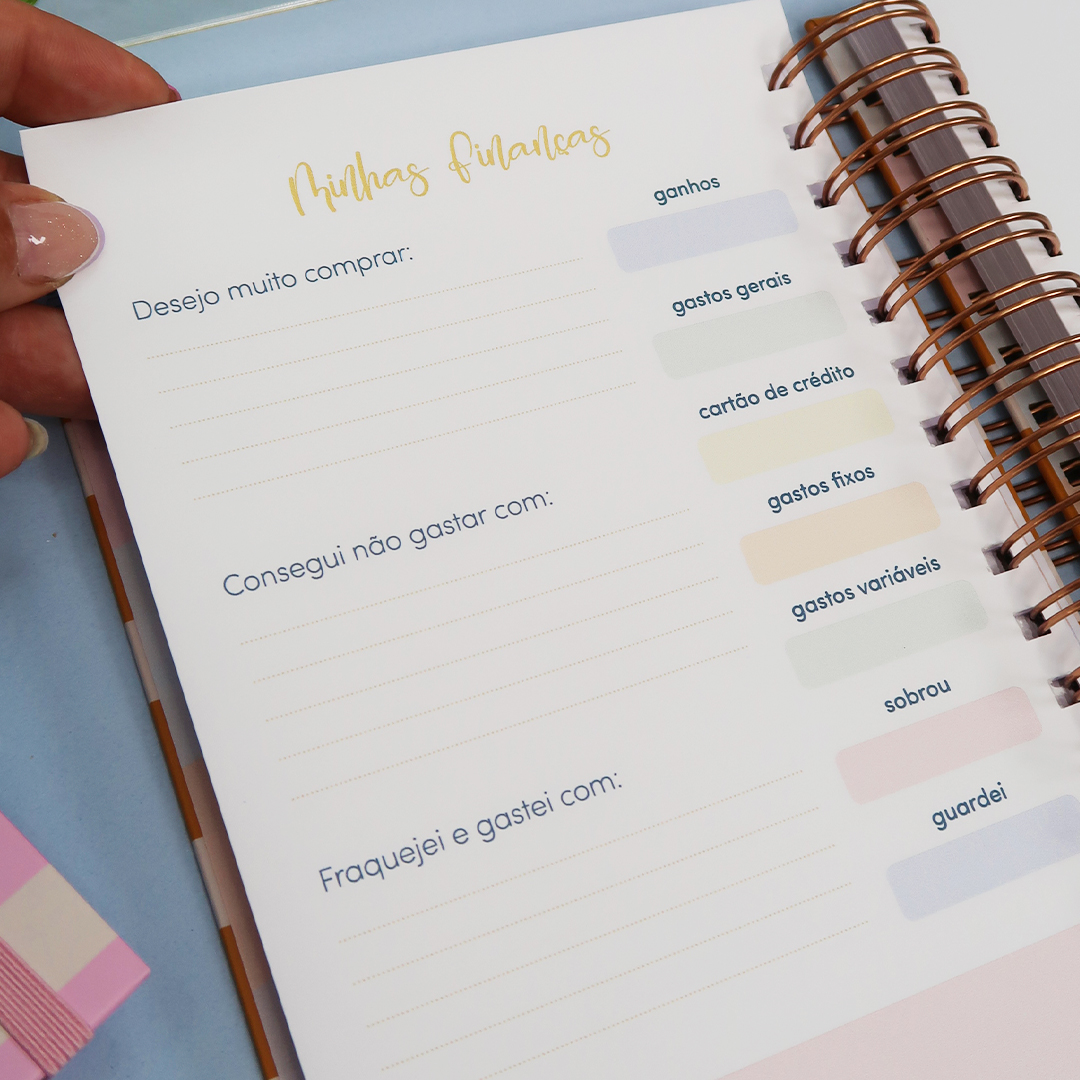 Minhas finanças
Desejo muito comprar:
Consegui não gastar com:
Fraquejei e gastei com:
ganhos
gastos gerais
cartão de crédito
gastos fixos
gastos variáveis
sobrou
guardei